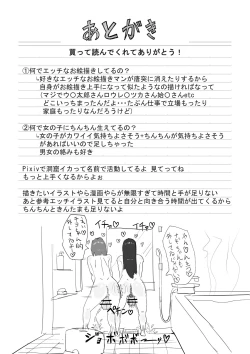 あとがき
買って読んでくれてありがとう！
①何でエッチなお絵描きしてるの？
↳好きなエッチなお絵描きマンが唐突に消えたりするから
自身がお絵描き上手になって似たようなの描ければなって
（マジでウ〇太郎さんロウレ〇ツカさん始〇さんetc
どこいっちまったんだよ…たぶん仕事で立場もったり
家庭もったりなんだろうけど）
②何で女の子にちんちん生えてるの？
↳女の子がカワイイ気持ちよさそう+ちんちんが気持ちよさそう
があればいいので足しちゃった
男女の絡みも好き
Pixivで洞窟イカって名前で活動してるよ 見てってね
もっと上手くなるからよぉ
描きたいイラストやら漫画やらが無限すぎて時間と手が足りない
あと参考エッチイラスト見てると自分と向き合う時間が出てくるから
ちんちんときんたまも足りないよ
イチャ♡
イチャ♡
ペチン♡
ジョボボボーーッ♡